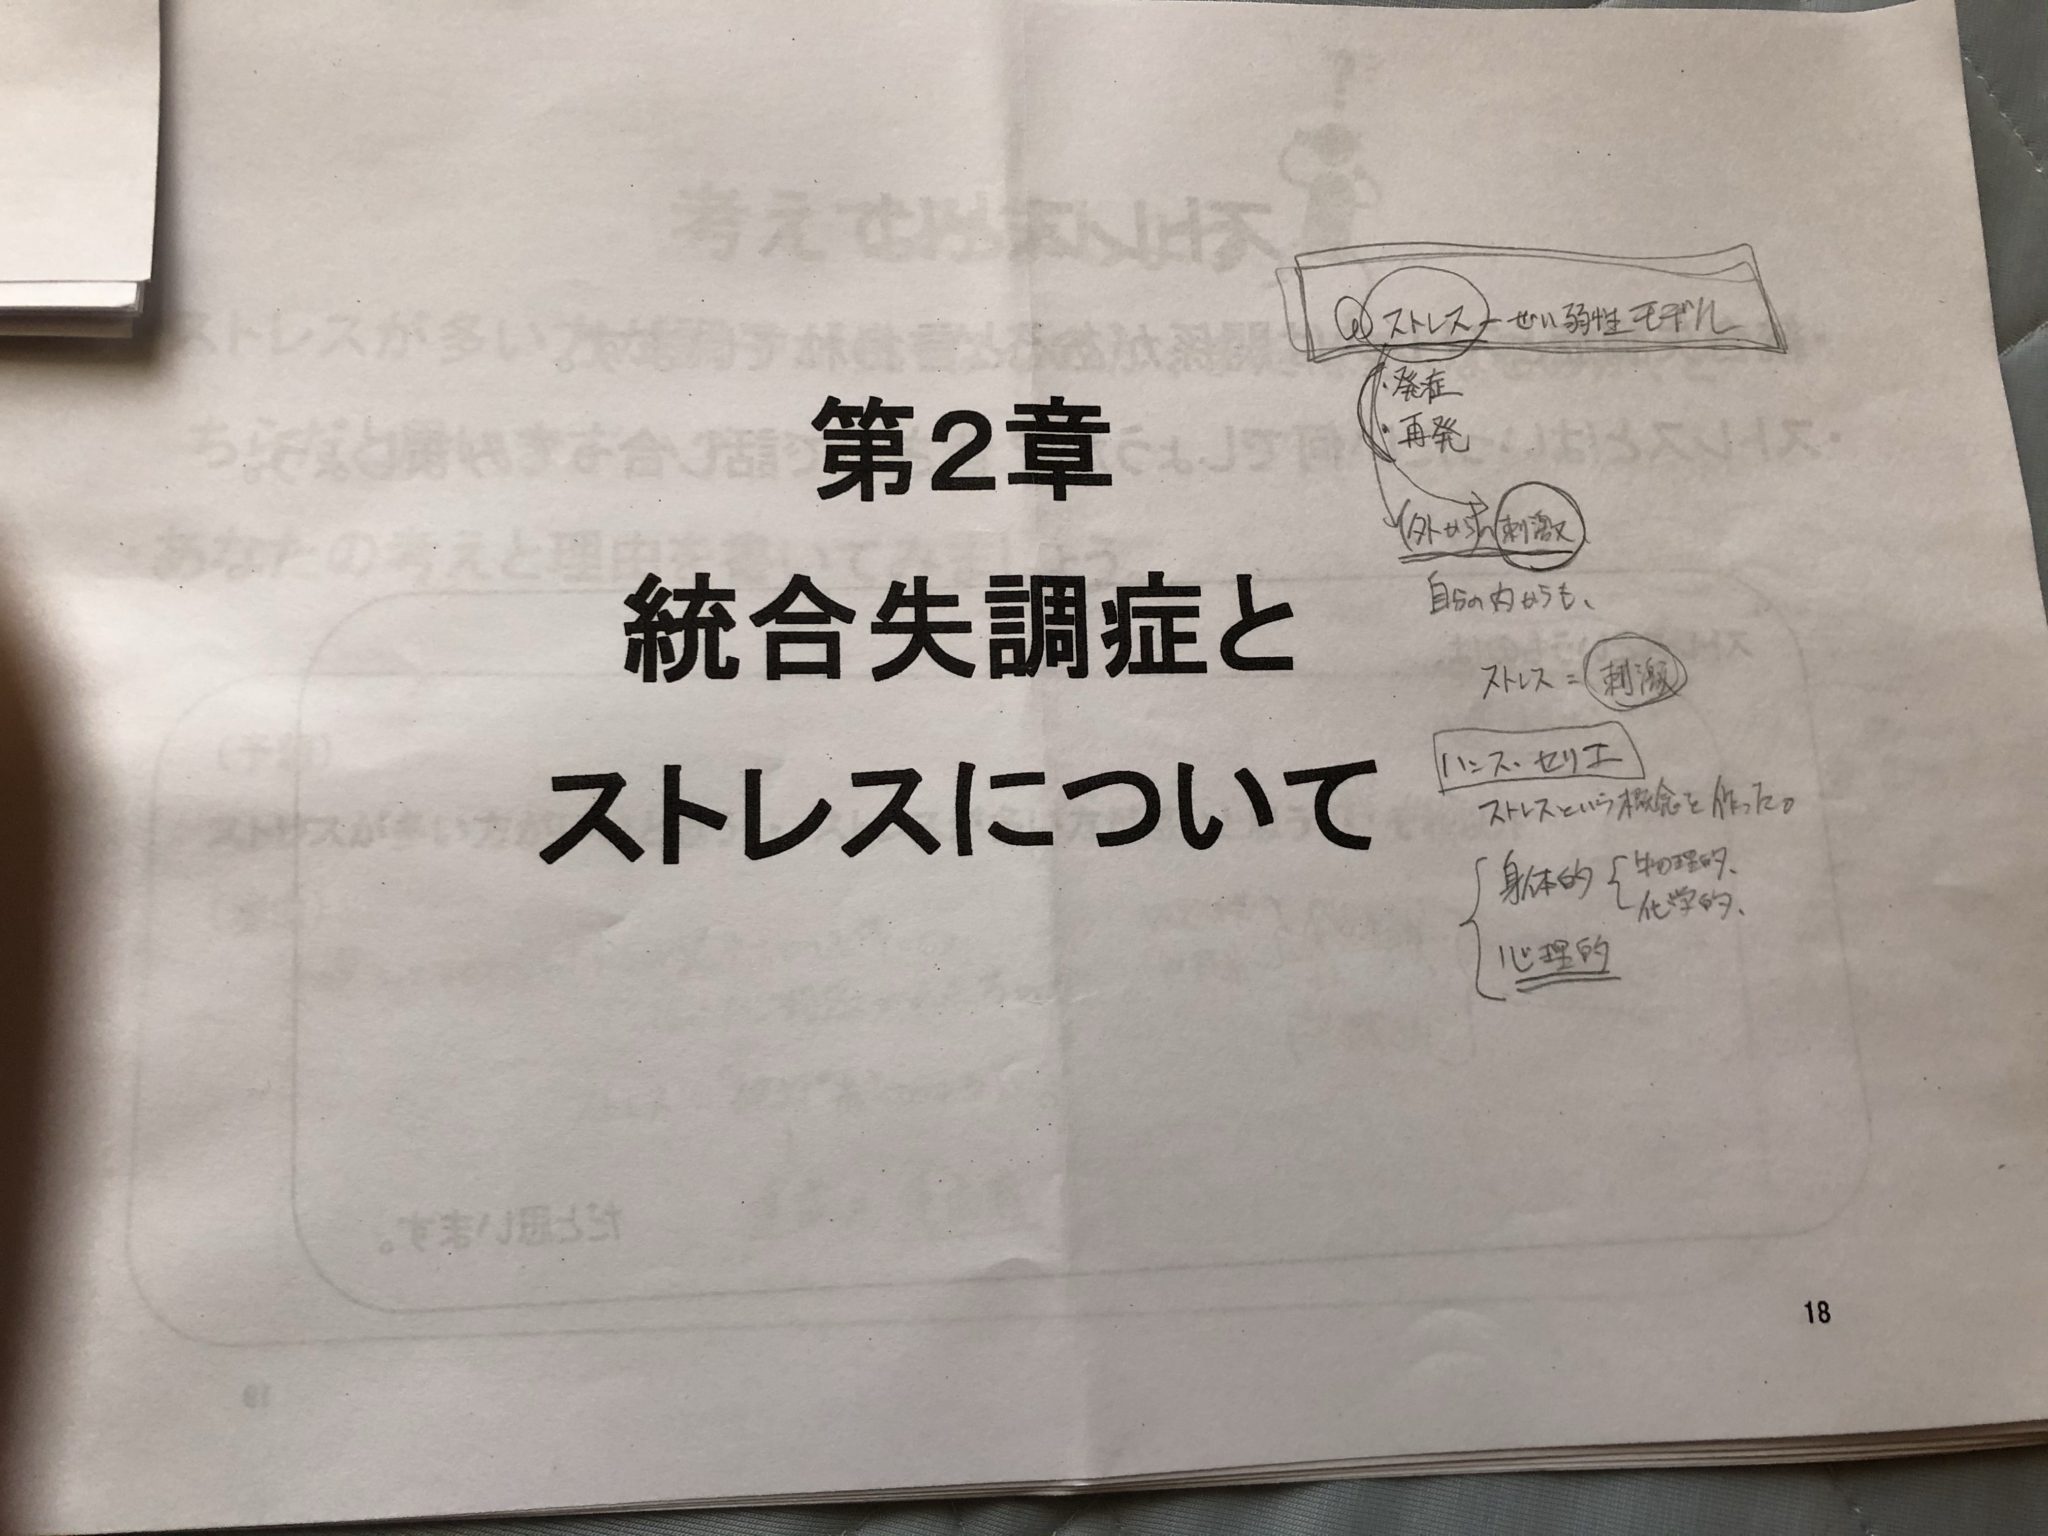 第2章
統合失調症と
ストレスについて
ストレスーぜい弱性モデル
・発症
・再発
外からの刺激
自分の内からも、
ストレス=刺激
ハンス・セリエ
ストレスという概念を作った。
身体的 物理的、
化学的、
心理的
18
だと思います。